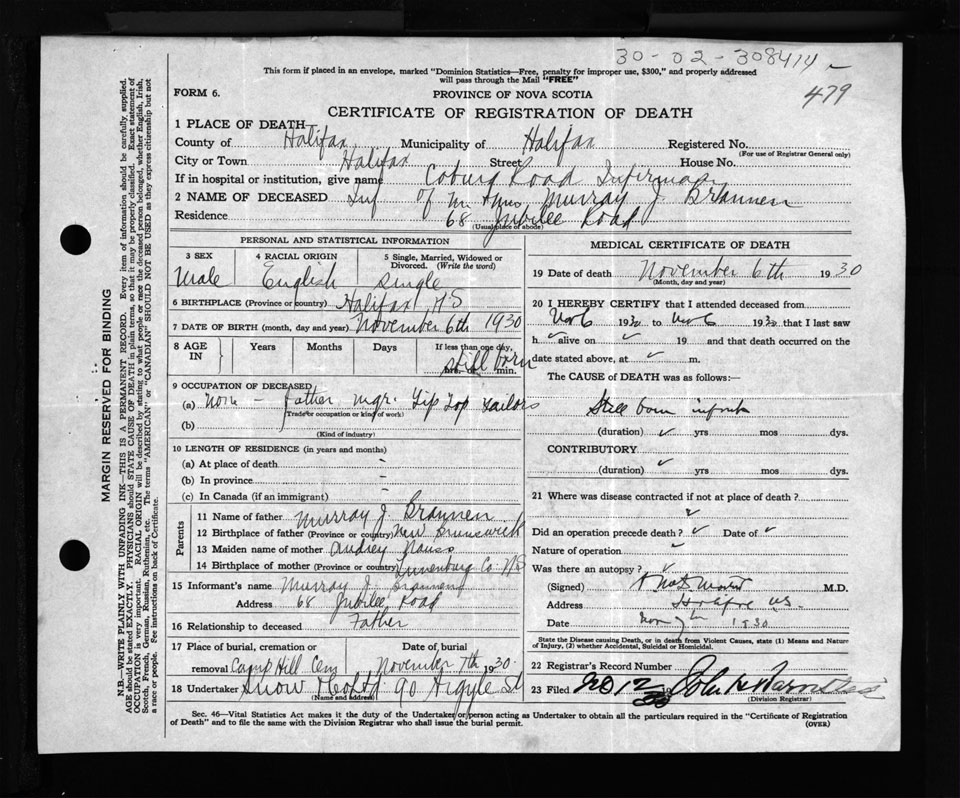 30-02-308414
479
This form if placed in an envelope, marked "Dominion Statistics—Free, penalty for improper use, $300," and properly addressed
will pass through the Mail "FREE"
FORM 6.
PROVINCE OF NOVA SCOTIA
CERTIFICATE OF REGISTRATION OF DEATH
1 PLACE OF DEATH
County of Halifax Municipality of Halifax Registered No.
(For use of Registrar General only)
City or Town Halifax Street House No.
If in hospital or institution, give name Coburg Road Infirmary
2 NAME OF DECEASED Inf of Mr & Mrs Murray J. Brannen
Residence 68 Jubilee Road
(Usual place of abode)
PERSONAL AND STATISTICAL INFORMATION
3 SEX 4 RACIAL ORIGIN 5 Single, Married, Widowed or
Divorced. (Write the word)
Male English Single
6 BIRTHPLACE (Province or country) Halifax N S
7 DATE OF BIRTH (month, day and year) November 6th 1930
8 AGE IN Years Months Days If less than one day,
still born
hrs. or min.
9 OCCUPATION OF DECEASED
(a) None - Father mgr. Tip Top Tailors
(Trade or occupation or kind of work)
(b)
(Kind of industry)
10 LENGTH OF RESIDENCE (in years and months)
(a) At place of death -
(b) In province -
(c) In Canada (if an immigrant) -
Parents
11 Name of father Murray J. Brannen
12 Birthplace of father (Province or country) New Brunswick
13 Maiden name of mother Audrey Nauss
14 Birthplace of mother (Province or country) Lunenburg Co. N S
15 Informant's name Murray J Brannen
Address 68 Jubilee Road
16 Relationship to deceased Father
17 Place of burial, cremation or Date of burial
removal Camp Hill Cem November 7th 1930
18 Undertaker Snow & Co Ltd 90 Argyle St
(Name and address)
MEDICAL CERTIFICATE OF DEATH
19 Date of death November 6th 1930
(Month, day and year)
20 I HEREBY CERTIFY that I attended deceased from
Nov 6 1930 to Nov 6 1930 that I last saw
h alive on 19 and that death occurred on the
date stated above, at m.
The CAUSE of DEATH was as follows:—
Still born infant
(duration) yrs mos dys.
CONTRIBUTORY
(duration) yrs mos dys.
21 Where was disease contracted if not at place of death?
Did an operation precede death? Date of
Nature of operation
Was there an autopsy?
(Signed) M.D.
Address Halifax N.S.
Date Nov 7th 1930
State the Disease causing Death, or in death from Violent Causes, state (1) Means and Nature
of Injury, (2) whether Accidental, Suicidal or Homicidal.
22 Registrar's Record Number
23 Filed 12
(Division Registrar)
Sec. 46—Vital Statistics Act makes it the duty of the Undertaker or person acting as Undertaker to obtain all the particulars required in the "Certificate of Registration
of Death" and to file the same with the Division Registrar who shall issue the burial permit.
(OVER)
MARGIN RESERVED FOR BINDING
N.B.—WRITE PLAINLY WITH UNFADING INK—THIS IS A PERMANENT RECORD. Every item of information should be carefully supplied.
AGE should be stated EXACTLY. PHYSICIANS should STATE CAUSE OF DEATH in plain terms, so that it may be properly classified. Exact statement of
OCCUPATION is very important. RACIAL ORIGIN will be described by stating to what people or race the deceased person belonged, whether English, Irish,
Scotch, French, German, Russian, Ruthenian, etc. The terms "AMERICAN" or "CANADIAN" SHOULD NOT BE USED as they express citizenship but not
a race or people. See instructions on back of Certificate.